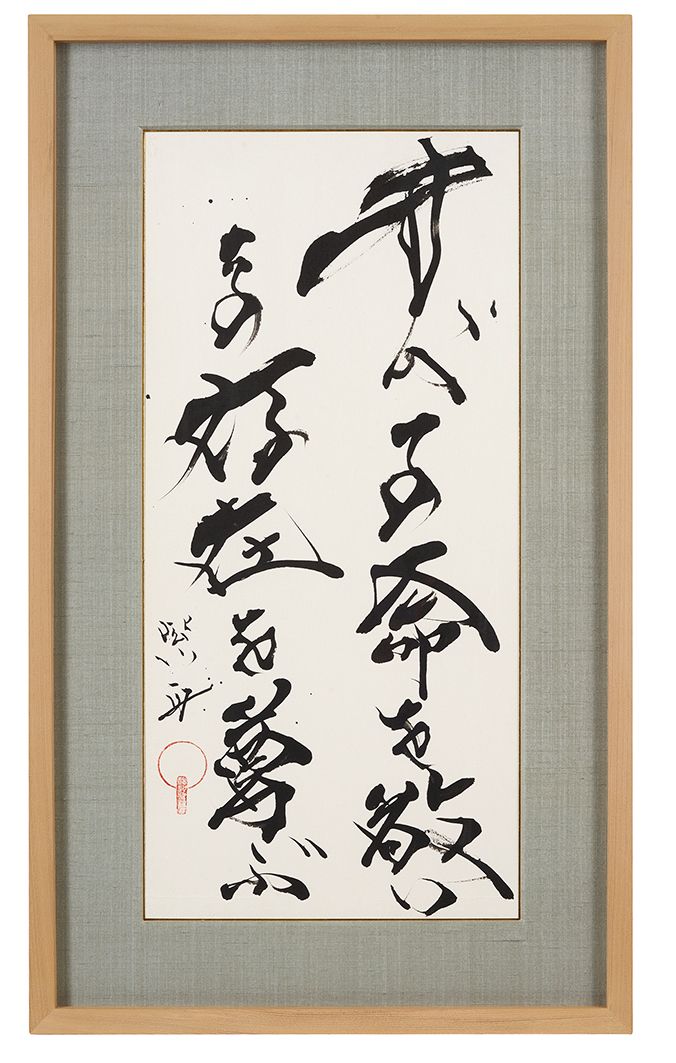 すべての命を敬い
その存在を尊ぶ
紫舟